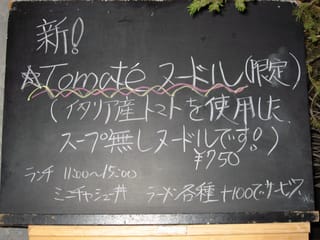 新!
☆Tomatéヌードル(限定)
(イタリア産トマトを使用した
スープ無しヌードルです!)
¥750
ランチ 11:00~15:00
ミニチャシュー丼 ラーメン各種+100でサービス